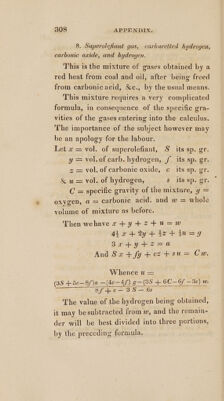 308 APPENDIX.
8. Superolefiant gas, carburetted hydrogen,
carbonic oxide, and hydrogen.
This is the mixture of gases obtained by a
red heat from coal and oil, after being freed
from carbonic acid, &c., by the usual means.
This mixture requires a very complicated
formula, in consequence of the specific gra-
vities of the gases entering into the calculus.
The importance of the subject however may
be an apology for the labour.
Let x = vol. of superolefiant, S its sp. gr.
y = vol. of carb. hydrogen, f its sp. gr.
z = vol. of carbonic oxide, c its sp. gr.
& u = vol. of hydrogen, s its sp. gr.
C = specific gravity of the mixture, g =
oxygen, a = carbonic acid. and w = whole
volume of mixture as before.
Then we have x + y + z + u = w
4½ x + 2y + ½z + ½u = g
3 x + y + z = a
And S x + fy + cz + su = Cw.
Whence u =
(3S + 5c−8f)a − (4c−4f) g − (3S + 6C−6f −3c) w.
2f + c − 3 S − 6s
The value of the hydrogen being obtained,
it may be subtracted from w, and the remain-
der will be best divided into three portions,
by the preceding formula.